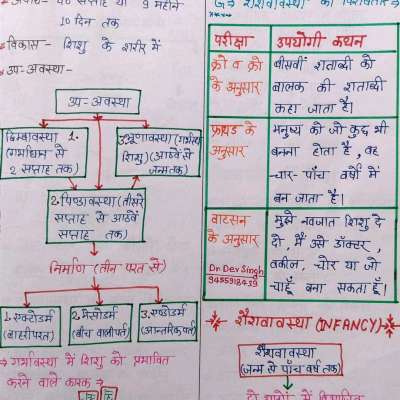 40 सप्ताह या 9 महीने
10 दिन तक
*विकास- शिशु के शरीर में
*उप-अवस्था-
उप-अवस्था
डिम्बावस्था 1.
(गर्भाधान से
2 सप्ताह तक)
3.भ्रूणावस्था (गर्भस्थ
शिशु) (आठवें से
जन्म तक)
2. पिण्डावस्था (तीसरे
सप्ताह से आठवें
सप्ताह तक)
निर्माण (तीन परत से)
1. एक्टोडर्म
(बाहरी परत)
2. मैसोडर्म
(बीच वाली पर्त)
3. एण्डोडर्म
(आन्तरिक पर्त)
→ गर्भावस्था में शिशु को प्रभावित
करने वाले कारक →
शैशवावस्था की
परीक्षा
उपयोगी कथन
क्रो व क्रो
के अनुसार
बीसवीं शताब्दी को
बालक की शताब्दी
कहा जाता है।
फ्रायड के
अनुसार
मनुष्य को जो कुछ भी
बनना होता है, वह
चार-पाँच वर्षों में
बन जाता है।
वाटसन
के अनुसार
Dr Dev Singh
मुझे नवजात शिशु दे
दो, मैं उसे डॉक्टर,
वकील, चोर या जो
चाहूँ बना सकता हूँ।
शैशवावस्था (INFANCY)
शैशवावस्था
(जन्म से पाँच वर्ष तक)